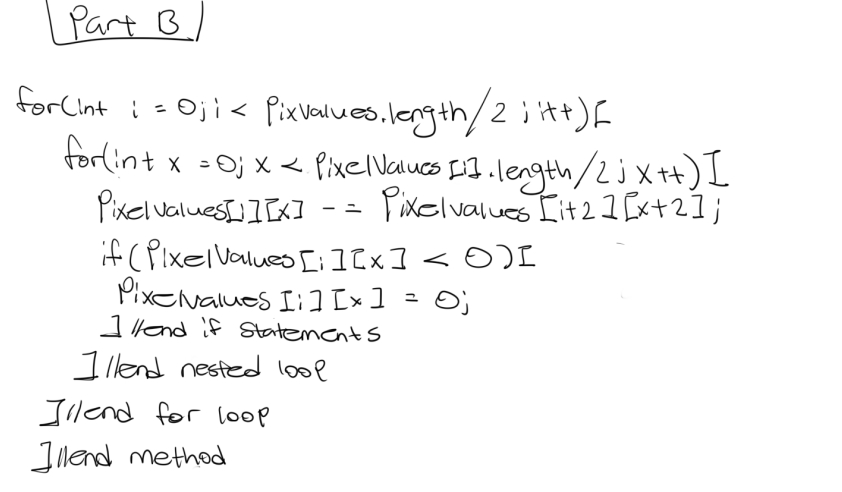 Part B
for(int i = 0; i < PixValues.length/2; i++)[
for(int x = 0; x < PixelValues[i].length/2; x++)[
PixelValues[i][x] -= Pixelvalues[i+2][x+2];
if(PixelValues[i][x] < 0)[
PixelValues[i][x] = 0;
]//end if statements
]//end nested loop
]//end for loop
]//end method